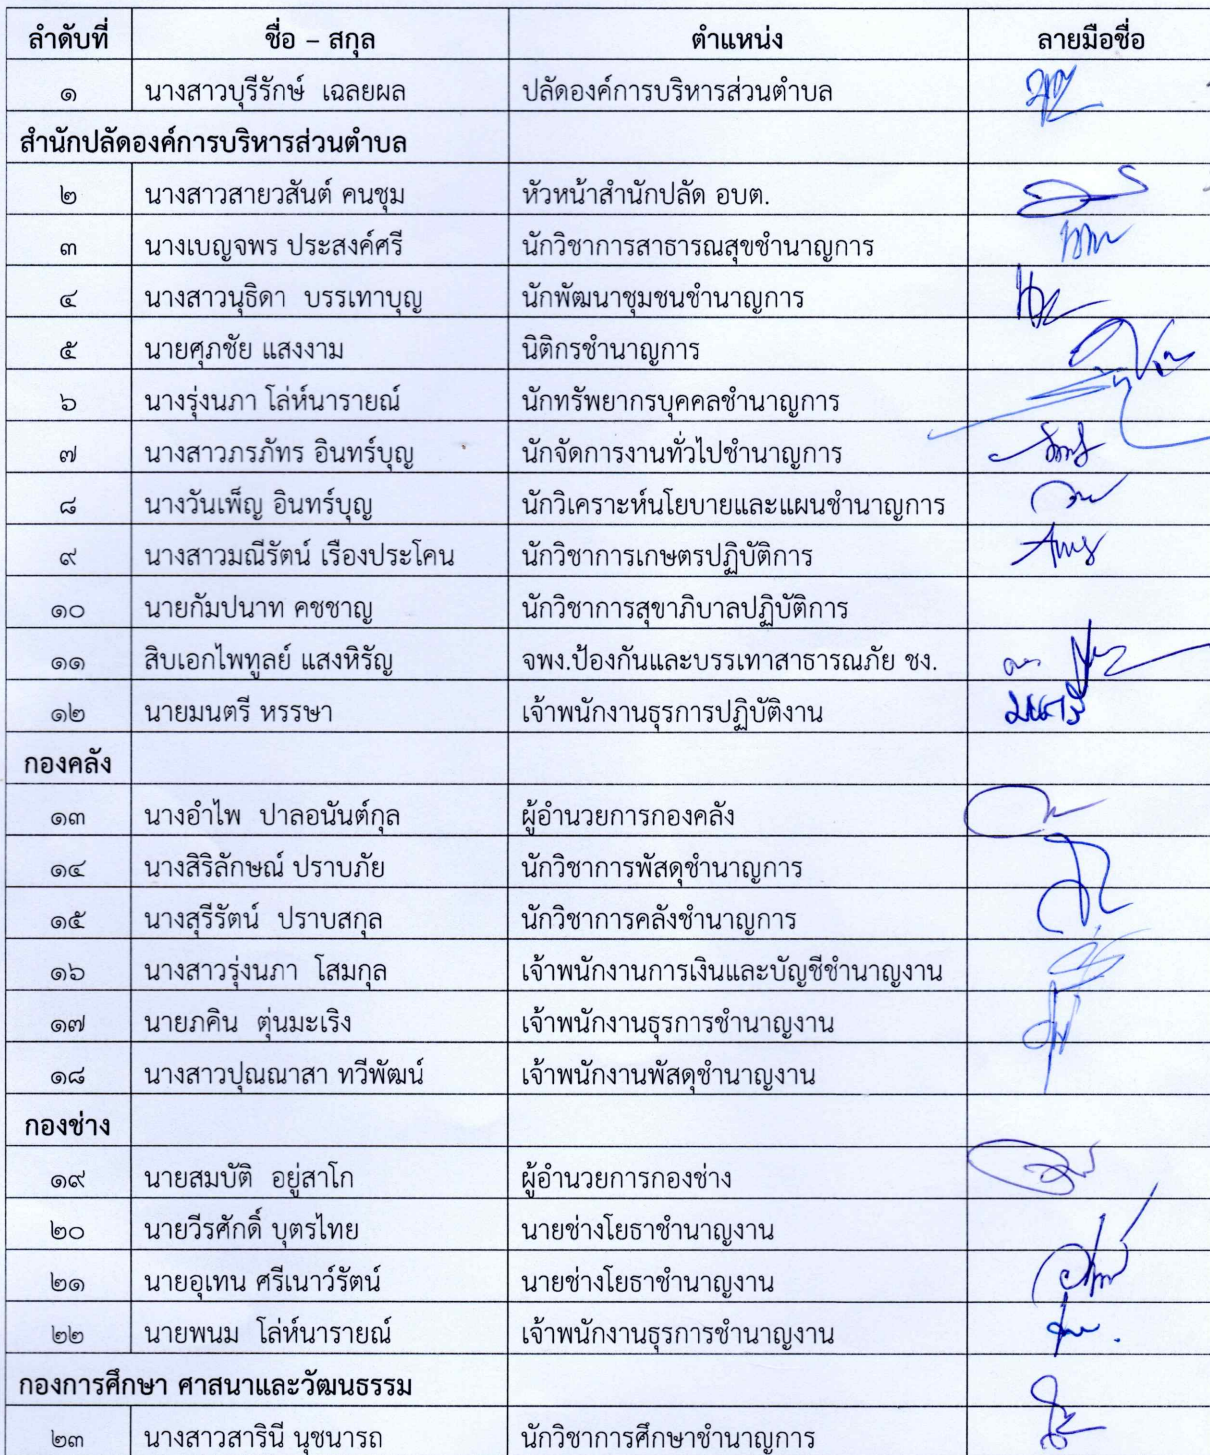 ลำดับที่ ชื่อ – สกุล ตำแหน่ง ลายมือชื่อ
๑ นางสาวบุรีรักษ์ เฉลยผล ปลัดองค์การบริหารส่วนตำบล
สำนักปลัดองค์การบริหารส่วนตำบล
๒ นางสาวสายวสันต์ คนชุม หัวหน้าสำนักปลัด อบต.
๓ นางเบญจพร ประสงค์ศรี นักวิชาการสาธารณสุขชำนาญการ
๔ นางสาวนุธิดา บรรเทาบุญ นักพัฒนาชุมชนชำนาญการ
๕ นายศุภชัย แสงงาม นิติกรชำนาญการ
๖ นางรุ่งนภา โล่ห์นารายณ์ นักทรัพยากรบุคคลชำนาญการ
๗ นางสาวภรภัทร อินทร์บุญ นักจัดการงานทั่วไปชำนาญการ
๘ นางวันเพ็ญ อินทร์บุญ นักวิเคราะห์นโยบายและแผนชำนาญการ
๙ นางสาวมณีรัตน์ เรืองประโคน นักวิชาการเกษตรปฏิบัติการ
๑๐ นายกัมปนาท คชชาญ นักวิชาการสุขาภิบาลปฏิบัติการ
๑๑ สิบเอกไพทูลย์ แสงหิรัญ จพง.ป้องกันและบรรเทาสาธารณภัย ชง.
๑๒ นายมนตรี หรรษา เจ้าพนักงานธุรการปฏิบัติงาน มนตรี
กองคลัง
๑๓ นางอำไพ ปาลอนันต์กุล ผู้อำนวยการกองคลัง
๑๔ นางสิริลักษณ์ ปราบภัย นักวิชาการพัสดุชำนาญการ
๑๕ นางสุรีรัตน์ ปราบสกุล นักวิชาการคลังชำนาญการ
๑๖ นางสาวรุ่งนภา โสมกุล เจ้าพนักงานการเงินและบัญชีชำนาญงาน
๑๗ นายภคิน ตุ่นมะเริง เจ้าพนักงานธุรการชำนาญงาน
๑๘ นางสาวปุณณาสา ทวีพัฒน์ เจ้าพนักงานพัสดุชำนาญงาน
กองช่าง
๑๙ นายสมบัติ อยู่สาโก ผู้อำนวยการกองช่าง
๒๐ นายวีรศักดิ์ บุตรไทย นายช่างโยธาชำนาญงาน
๒๑ นายอุเทน ศรีเนาว์รัตน์ นายช่างโยธาชำนาญงาน
๒๒ นายพนม โล่ห์นารายณ์ เจ้าพนักงานธุรการชำนาญงาน
กองการศึกษา ศาสนาและวัฒนธรรม
๒๓ นางสาวสารินี นุชนารถ นักวิชาการศึกษาชำนาญการ